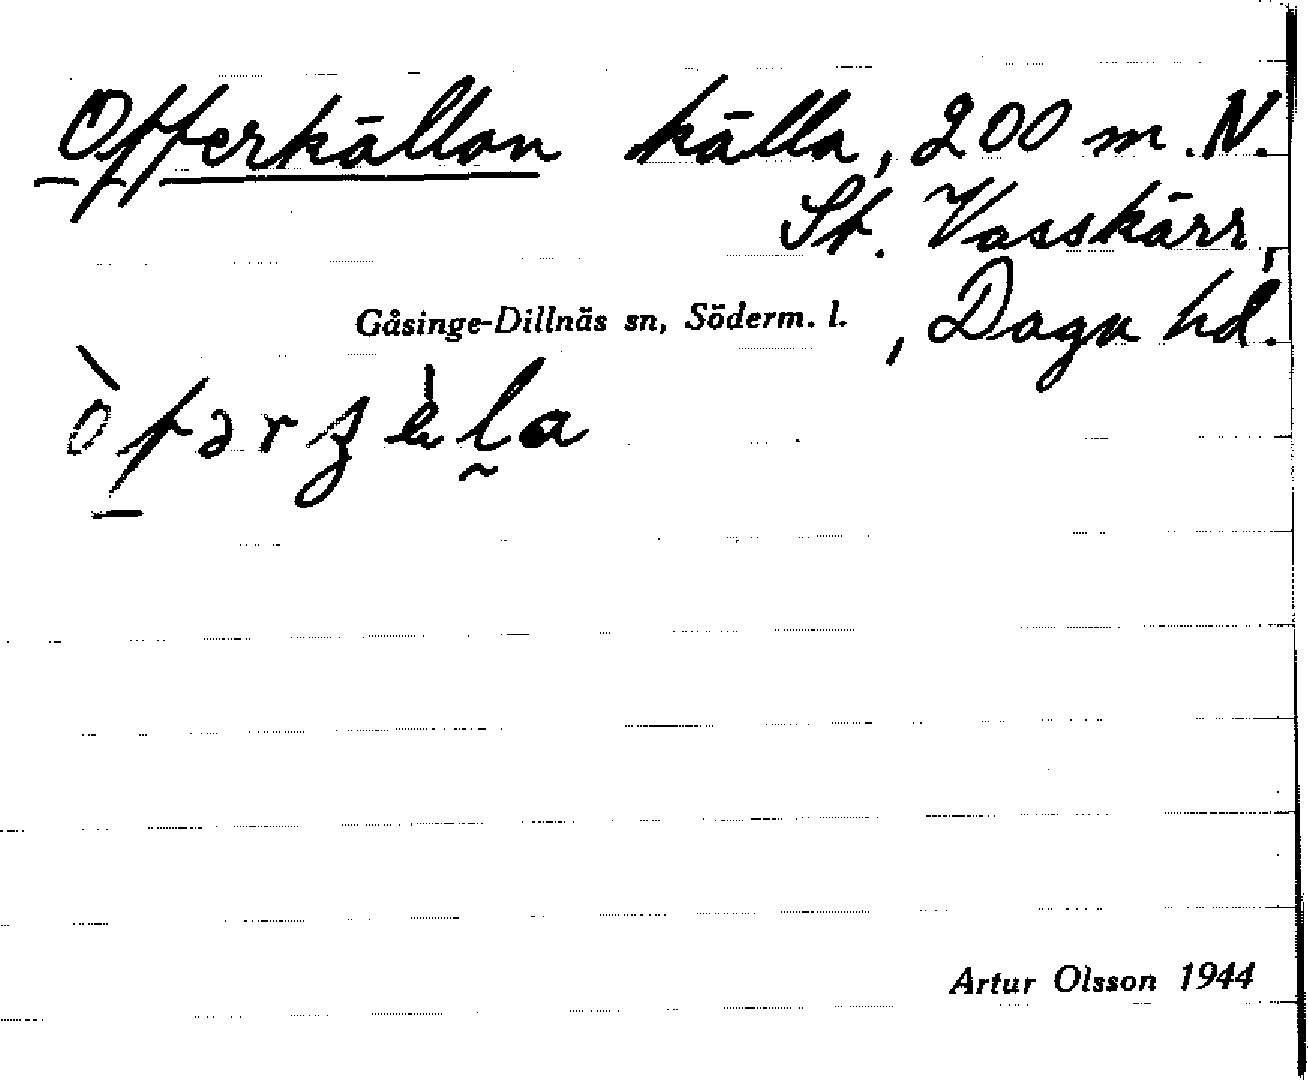 Offerkällan källa, 200 m. N.
St. Vasskärr,
Gåsinge-Dillnäs sn, Söderm. l. , Daga hd.
Artur Olsson 1944